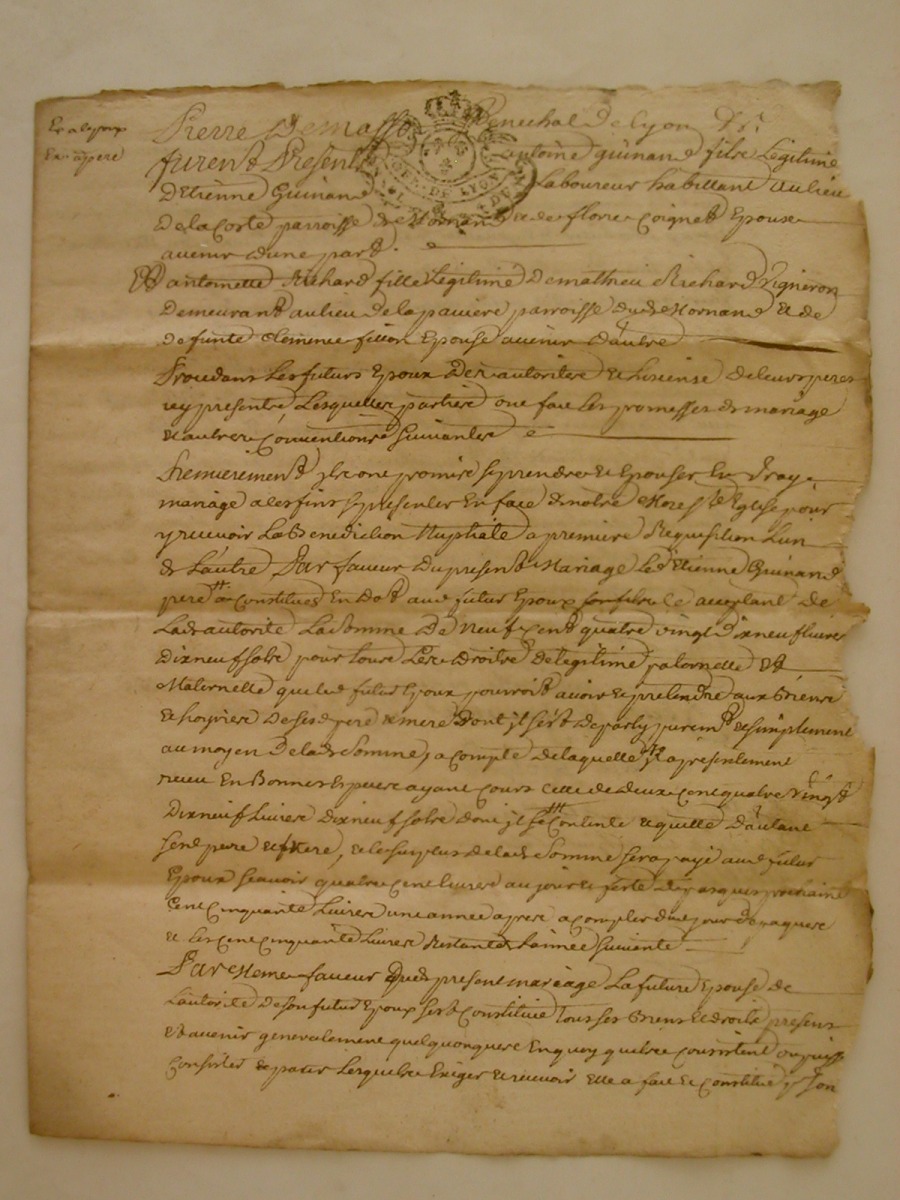 Pierre Demasso Senechal de Lyon &c.
furent Presents antoine guinand fils Legitime
D'Etienne Guinand Laboureur habittant au lieu
De la Coste parroisse de Mornand & de florie Coignet Epoux
avenir d'une part.
Et antoinette Richard fille Legitime De mathieu Richard Vigneron
Demeurant au lieu de la paviere parroisse dud. Mornand & de
defunte Clemence fillion Epouse avenir d'autre
Procedans Les futurs Epoux De autorites & License de leurs peres
icy presents, Lesquelles parties ont fait les promesses de mariage
& autres Conventions suivantes
Premierement ils ont promis se prendre & Epouser En Vray
mariage a ces fins se presenter En face de notre Mere Ste Eglise pour
y recevoir La Benediction Nuptiale a premiere Requisition L'un
de L'autre Par faveur du present Mariage Led. Etienne Guinand
pere a Constitué En Dot aud. futur Epoux son fils ce acceptant de
Lad. autorité La Somme De Neuf Cent quatre vingt Dix neuf livres
Dix neuf sols pour tous Les Droits de legitime paternelle Et
Maternelle que led. futur Epoux pourroit avoir & pretendre aux Biens
& hoiries De sesd. pere & mere dont il s'est departy purem.t & simplement
au moyen De lad. Somme, a Compte de laquelle il a presentement
receu En Bonnes Especes ayant Cours Celle de deux Cent quatre Vingt
Dix neuf Livres Dix neuf sols dont il se Contente & quitte D'autant
send. pere & mere, & le surplus de lad. Somme sera payé aud. futur
Epoux scavoir quatre Cent livres au jour & feste de pasques prochaine
Cent Cinquante Livres une année apres a compter dud. jour de paques
& Les Cent Cinquante Livres Restantes L'année suivante
Par Meme faveur Dud. present mariage La future Epouse de
L'autorité De son futur Epoux s'est Constitué Tous ses Biens & droits presens
& avenir generalement quelquonques En quoy qu'ils consistent ou puisse
Consister & pour Lesquels Exiger & recevoir Elle a fait & Constitué p. son